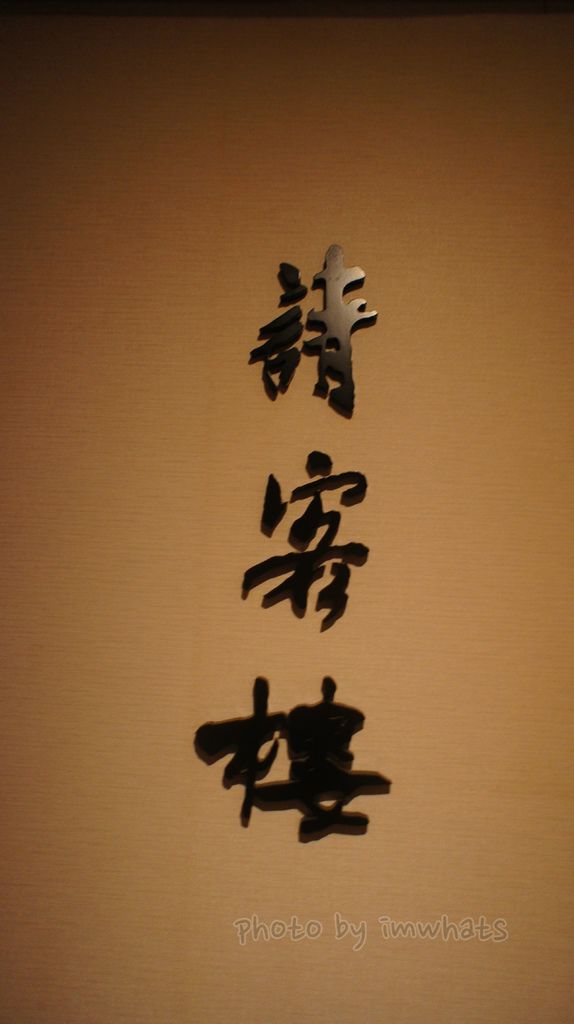 請客樓
photo by imwhats